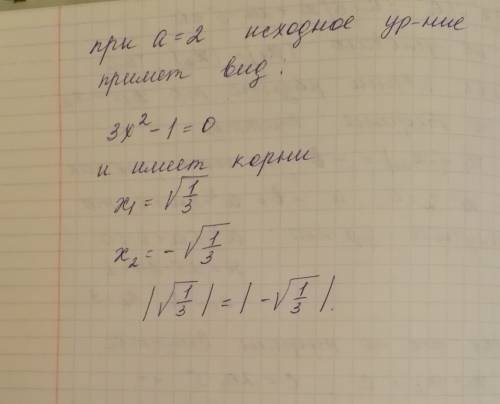 при a = 2 исходное ур-ние
примет вид:
3x² - 1 = 0
и имеет корни
x₁ = √(1/3)
x₂ = -√(1/3)
|√(1/3)| = |-√(1/3)|.